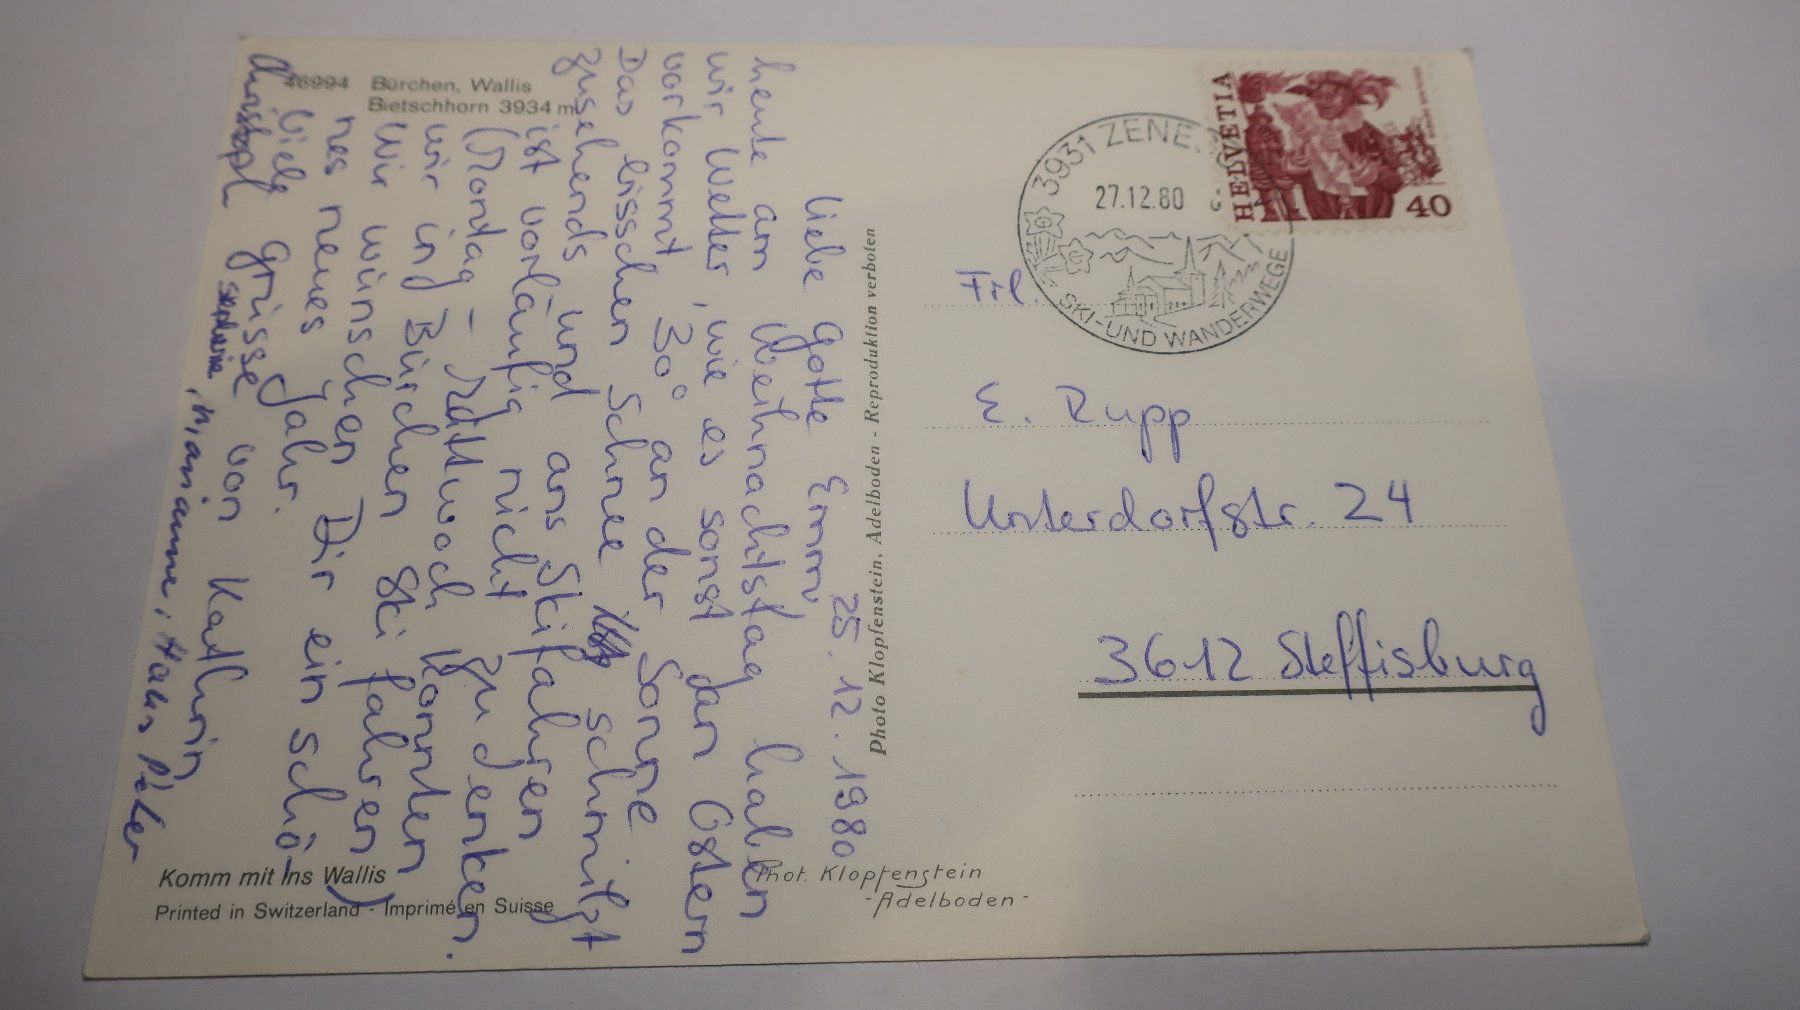 46994 Bürchen, Wallis
Bietschhorn 3934 m
25.12.1980
Liebe Gotte Emmi,
heute am Weihnachtstag haben
wir Wetter, wie es sonst an Ostern
vorkommt, 30° an der Sonne
Das bisschen Schnee schmilzt
zusehends und ans Skifahren
ist vorläufig nicht zu denken.
(Montag - Mittwoch konnten
wir in Bürchen Ski fahren)
Wir wünschen Dir ein schö-
nes neues Jahr.
Viele Grüsse von Kathrin
Christoph Stephanie, Marianne, Hans Peter
Komm mit ins Wallis
Printed in Switzerland - Imprimé en Suisse
Phot. Klopfenstein
- Adelboden -
Photo Klopfenstein, Adelboden - Reproduktion verboten
HELVETIA
40
3931 ZENE
27.12.80
SKI- UND WANDERWEGE
Frl.
E. Rupp
Unterdorfstr. 24
3612 Steffisburg